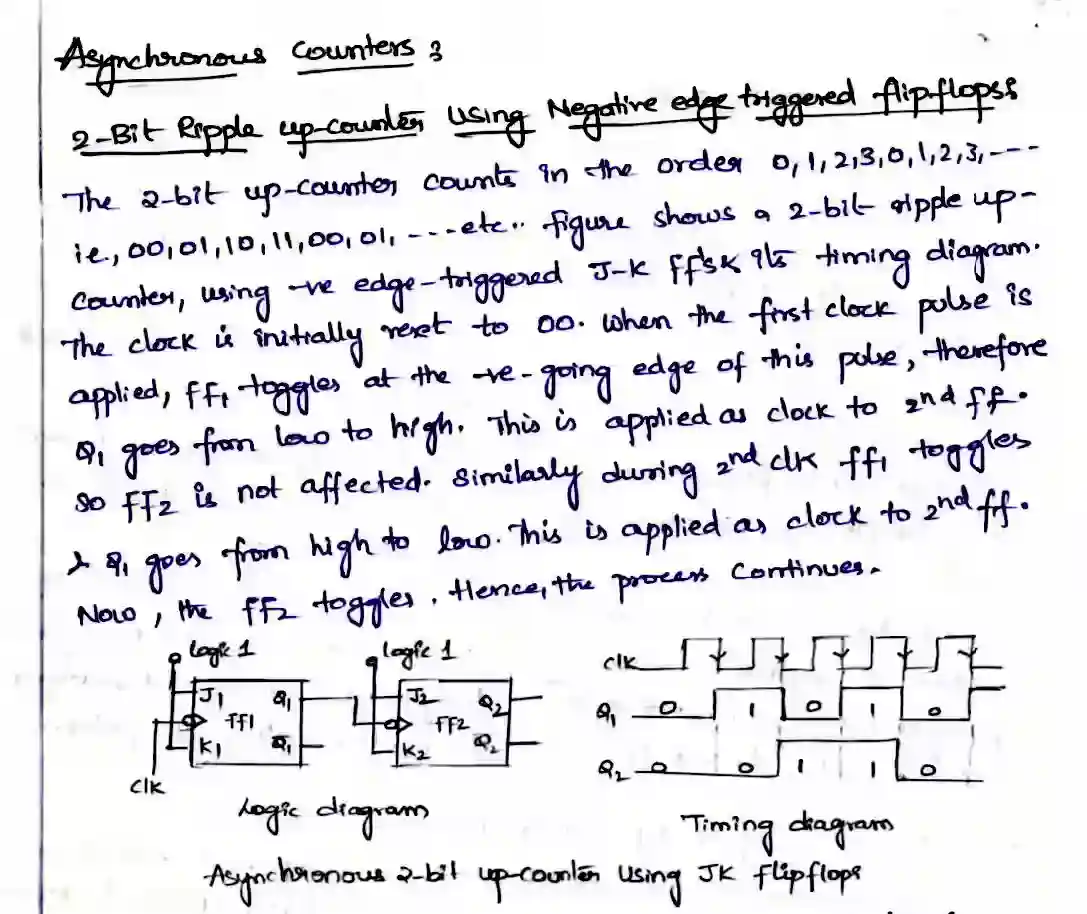 Asynchronous Counters :
2-Bit Ripple up-counter Using Negative edge triggered flipflops:
The 2-bit up-counter counts in the order 0,1,2,3,0,1,2,3,---
ie., 00,01,10,11,00,01,---etc.. figure shows a 2-bit ripple up-
Counter, using -ve edge-triggered J-K ff's & its timing diagram.
The clock is initially reset to 00. When the first clock pulse is
applied, ff1 toggles at the -ve-going edge of this pulse, therefore
Q1 goes from low to high. This is applied as clock to 2nd ff.
So FF2 is not affected. Similarly during 2nd clk ff1 toggles
& Q1 goes from high to low. This is applied as clock to 2nd ff.
Now, the FF2 toggles. Hence, the process continues.
logic 1 logic 1
J1 Q1 J2 Q2
ff1 FF2
K1 Q̅1 K2 Q̅2
Clk
Logic diagram
clk
Q1 0 1 0 1 0
Q2 0 0 1 1 0
Timing diagram
Asynchronous 2-bit up-counter Using JK flipflops